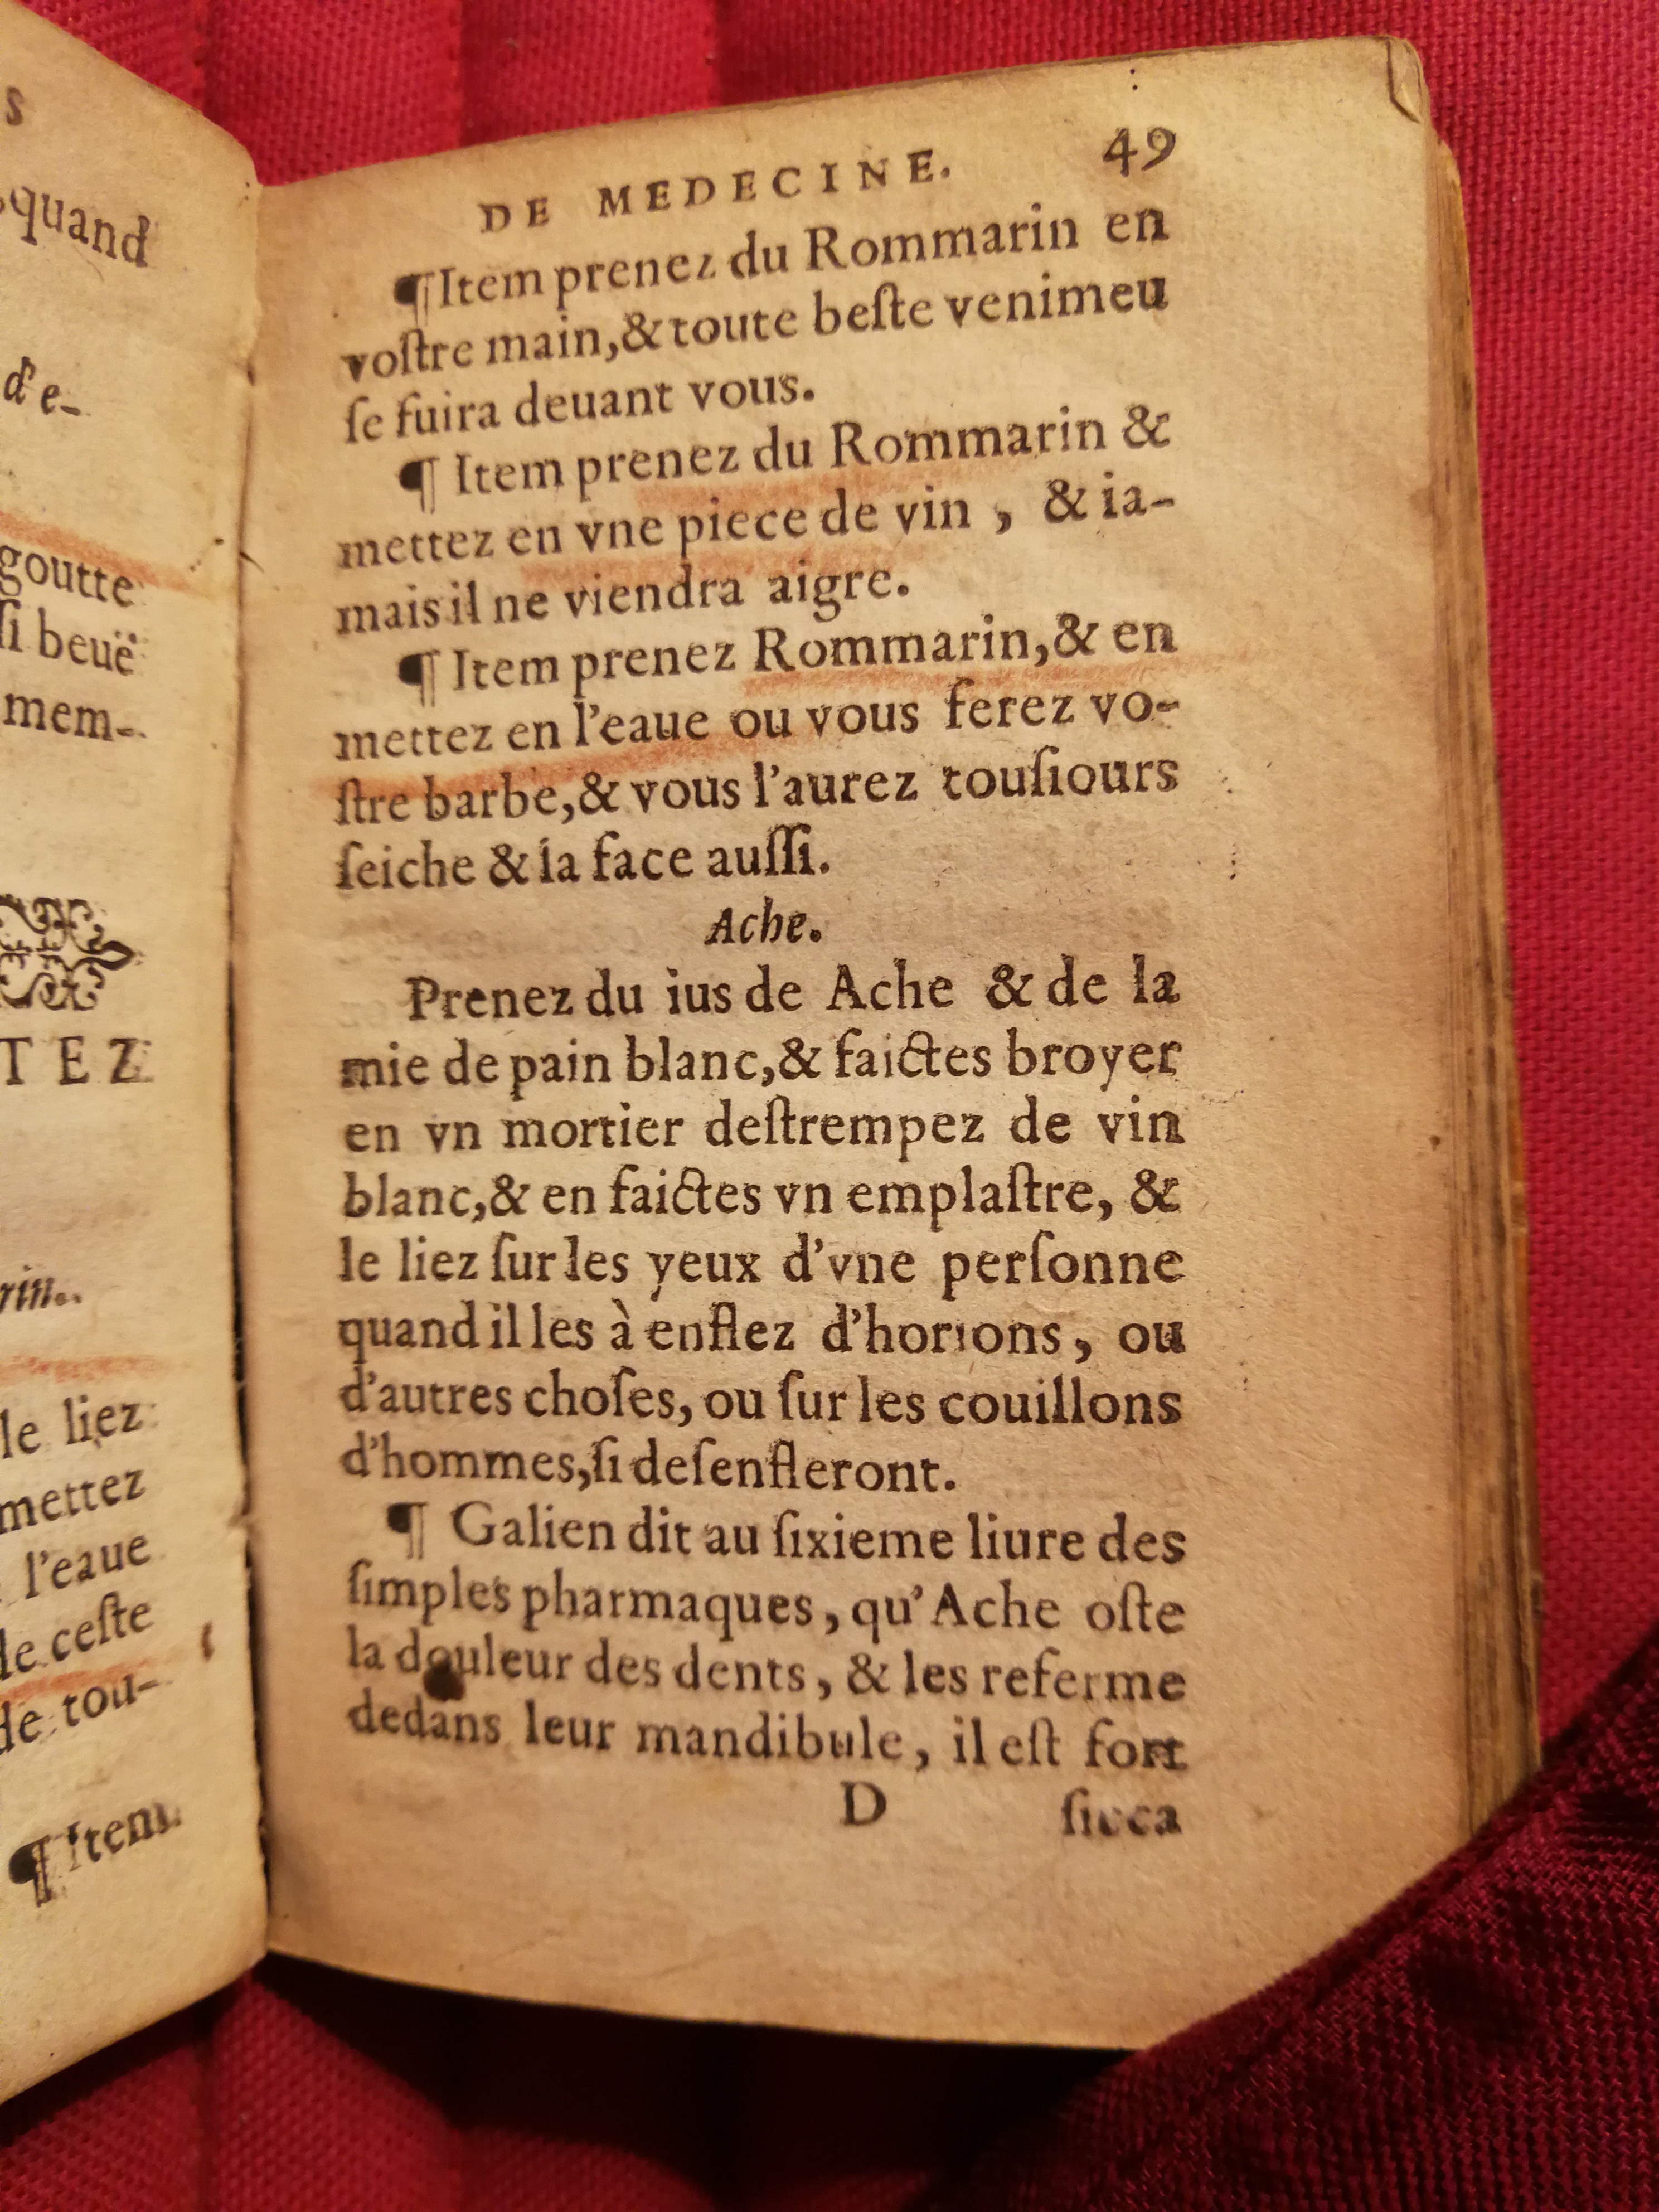 s
quand
d'e-
goutte
ſi beuë
mem-
TEZ
rin.
le liez
mettez
l'eaue
de ceſte
de tou-
¶Item
DE MEDECINE. 49
¶Item prenez du Rommarin en
voſtre main,& toute beſte venimeu
ſe fuira deuant vous.
¶ Item prenez du Rommarin &
mettez en vne piece de vin , & ia-
mais il ne viendra aigre.
¶ Item prenez Rommarin,& en
mettez en l'eaue ou vous ferez vo-
ſtre barbe,& vous l'aurez touſiours
ſeiche & la face auſſi.
Ache.
Prenez du ius de Ache & de la
mie de pain blanc,& faictes broyer
en vn mortier deſtrempez de vin
blanc,& en faictes vn emplaſtre, &
le liez ſur les yeux d'vne perſonne
quand il les à enflez d'horions, ou
d'autres choſes, ou ſur les couillons
d'hommes,ſi deſenfleront.
¶ Galien dit au ſixieme liure des
ſimples pharmaques, qu'Ache oſte
la douleur des dents, & les referme
dedans leur mandibule, il eſt fort
D ſicca